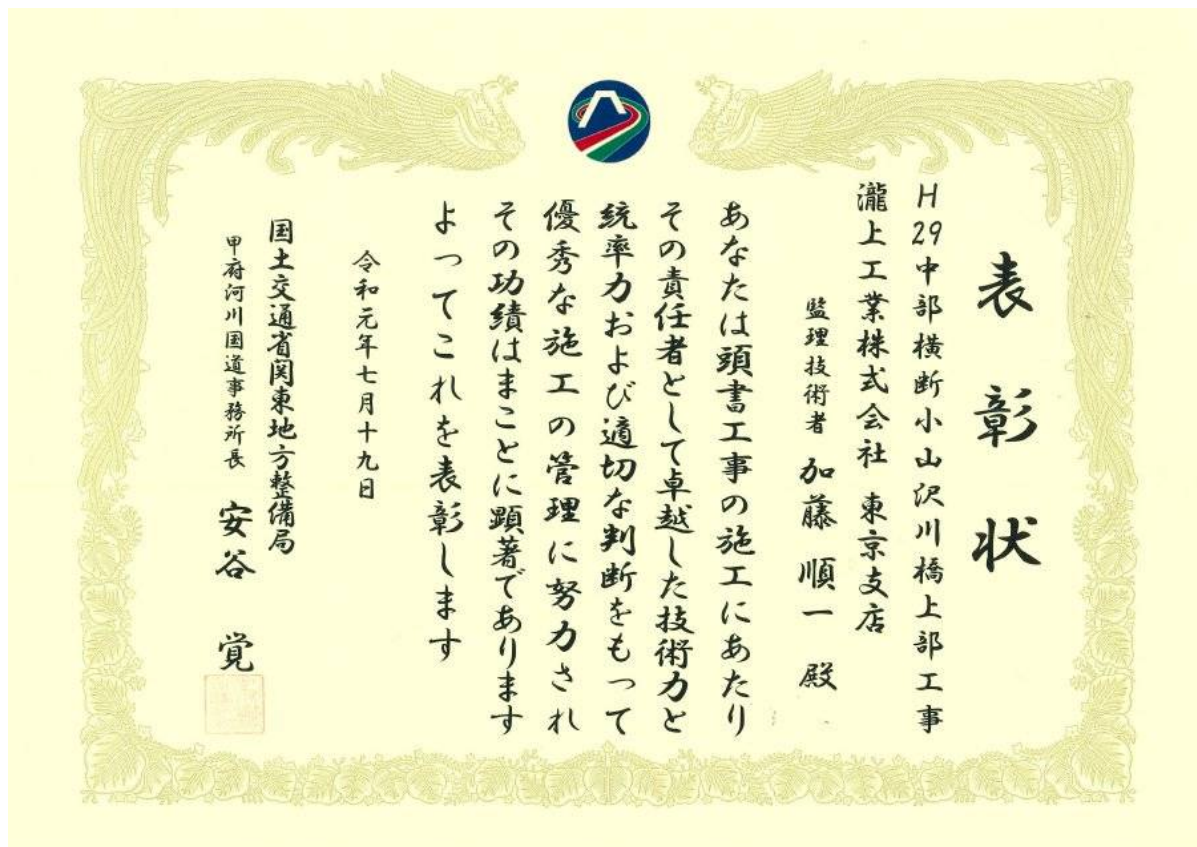 表彰状
H29中部横断小山沢川橋上部工事
瀧上工業株式会社 東京支店
監理技術者 加藤順一 殿
あなたは頭書工事の施工にあたり
その責任者として卓越した技術力と
統率力および適切な判断をもって
優秀な施工の管理に努力され
その功績はまことに顕著であります
よってこれを表彰します
令和元年七月十九日
国土交通省関東地方整備局
甲府河川国道事務所長 安谷 覚